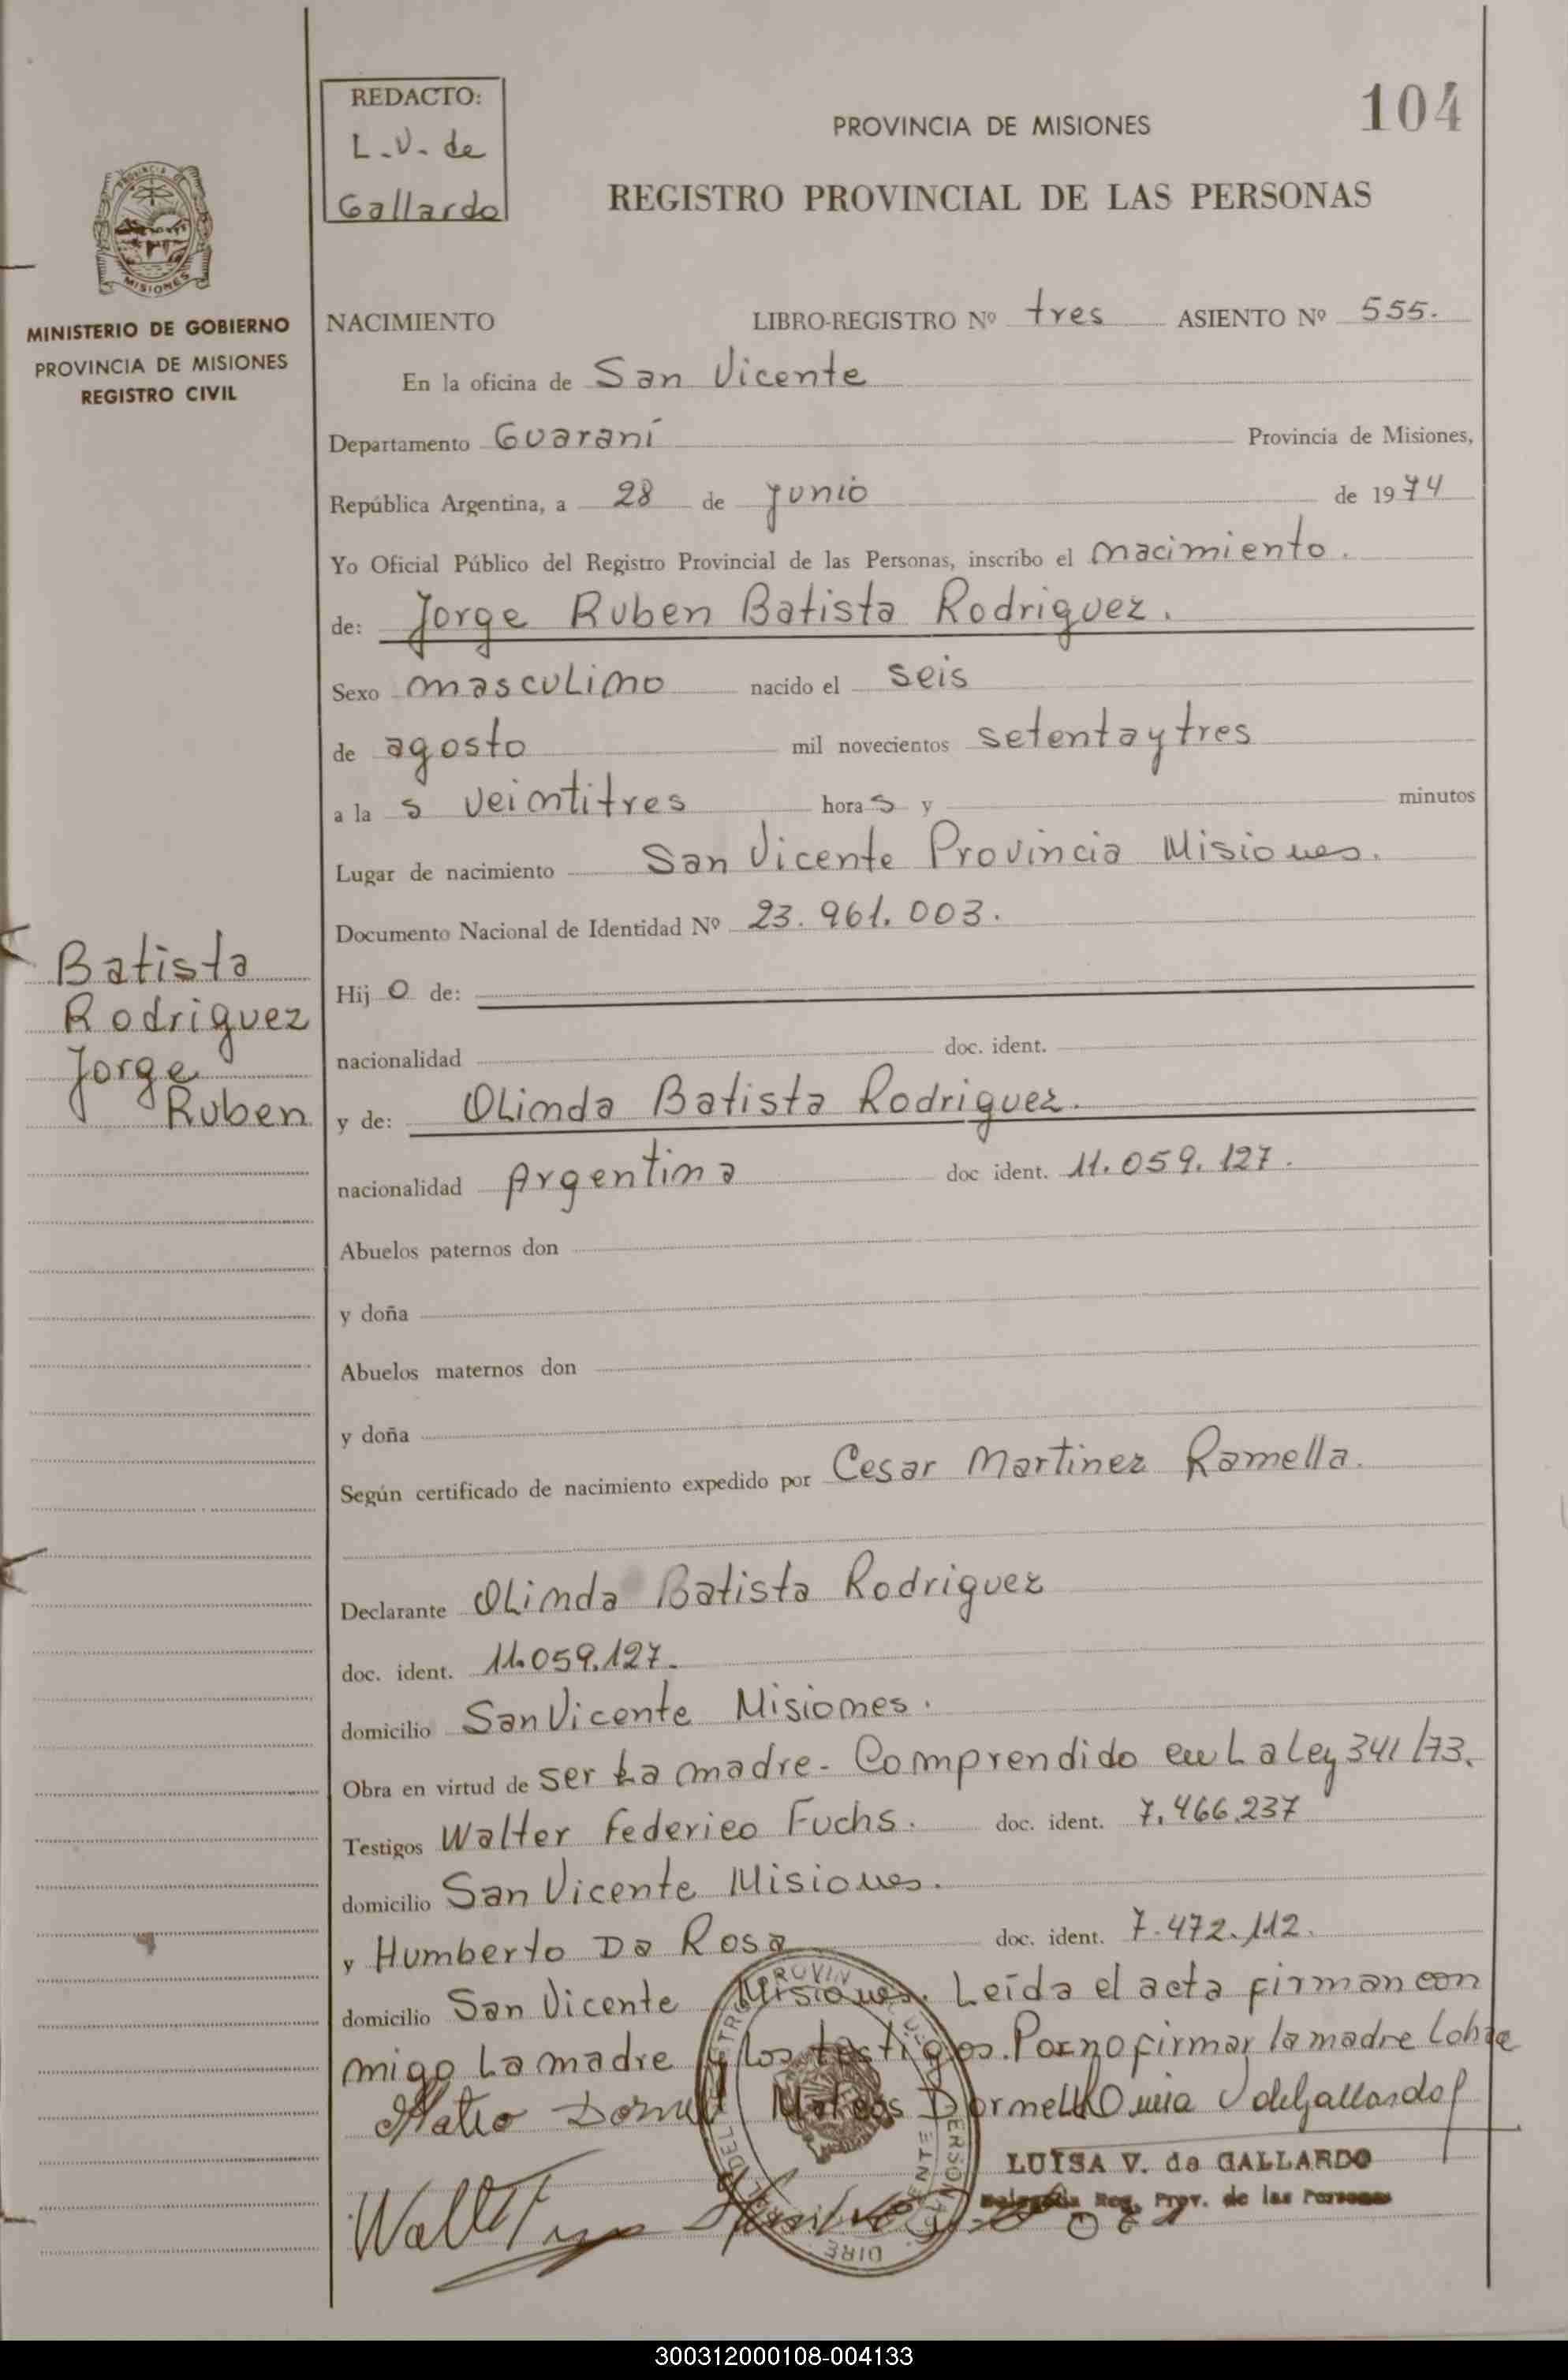 104
REDACTO:
L.V. de
Gallardo
PROVINCIA DE MISIONES
REGISTRO PROVINCIAL DE LAS PERSONAS
MISIONES
MINISTERIO DE GOBIERNO
PROVINCIA DE MISIONES
REGISTRO CIVIL
NACIMIENTO LIBRO-REGISTRO Nº tres ASIENTO Nº 555.
En la oficina de San Vicente
Departamento Guaraní Provincia de Misiones,
República Argentina, a 28 de junio de 1974
Yo Oficial Público del Registro Provincial de las Personas, inscribo el nacimiento.
de: Jorge Ruben Batista Rodriguez.
Sexo masculino nacido el seis
de agosto mil novecientos setenta y tres
a la s veintitres hora s y minutos
Lugar de nacimiento San Vicente Provincia Misiones.
Documento Nacional de Identidad Nº 23.961.003.
Batista
Rodriguez
Jorge
Ruben
Hij o de:
nacionalidad doc. ident.
y de: Olinda Batista Rodriguez.
nacionalidad Argentina doc ident. 11.059.127.
Abuelos paternos don
y doña
Abuelos maternos don
y doña
Según certificado de nacimiento expedido por Cesar Martinez Ramella.
Declarante Olinda Batista Rodriguez
doc. ident. 11.059.127.
domicilio San Vicente Misiones.
Obra en virtud de ser La madre - Comprendido en La Ley 341/73.
Testigos Walter Federico Fuchs. doc. ident. 7.466.237
domicilio San Vicente Misiones.
y Humberto Da Rosa doc. ident. 7.472.112.
domicilio San Vicente Misiones. Leída el acta firman con
migo La madre y los testigos. Por no firmar la madre lo hace
Mateo Mateos Dornell
LUISA V. de GALLARDO
Delegada Reg. Prov. de las Personas
300312000108-004133